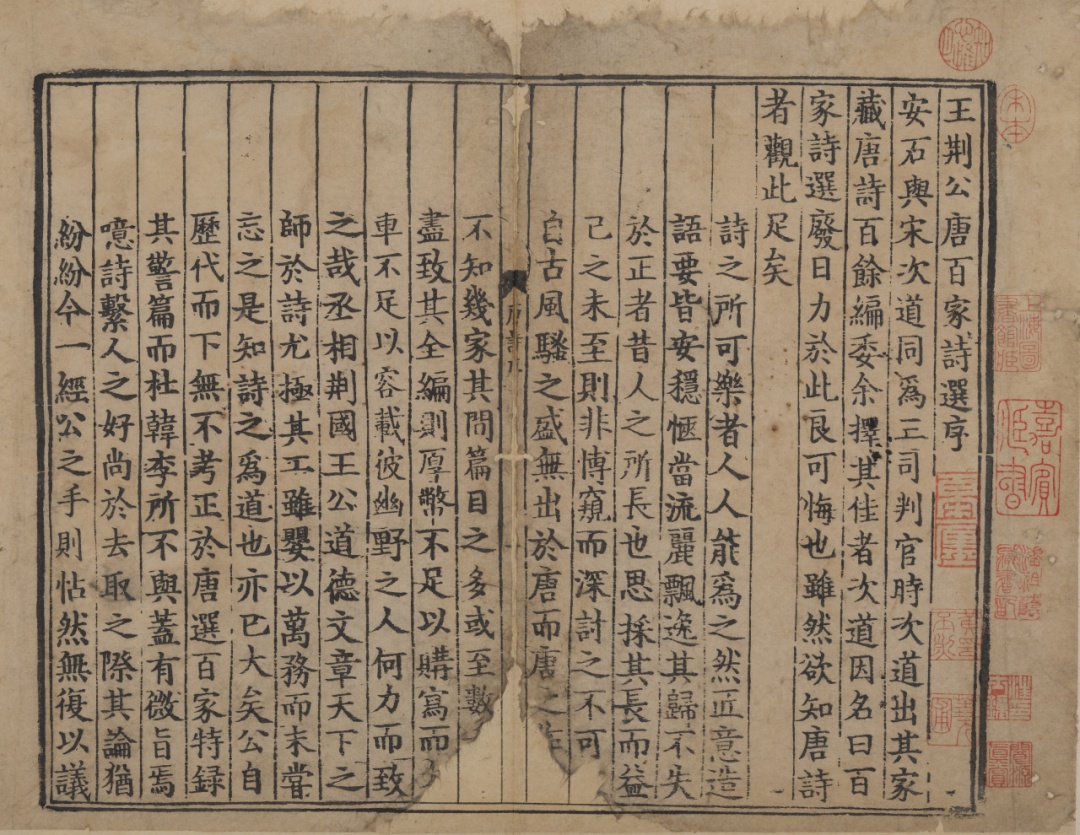 王荆公唐百家詩選序
安石與宋次道同爲三司判官時次道出其家
藏唐詩百餘編委余擇其佳者次道因名曰百
家詩選廢日力於此良可悔也雖然欲知唐詩
者觀此足矣
詩之所可樂者人人能爲之然匠意造
語要皆安穩愜當流麗飄逸其歸不失
於正者昔人之所長也思採其長而益
己之未至則非博窺而深討之不可
自古風騷之盛無出於唐而唐之
不知幾家其間篇目之多或至數
盡致其全編則厚幣不足以購寫而
車不足以容載彼幽野之人何力而致
之哉丞相荆國王公道德文章天下之
師於詩尤極其工雖嬰以萬務而未嘗
忘之是知詩之爲道也亦已大矣公自
歷代而下無不考正於唐選百家特録
其警篇而杜韓李所不與蓋有微旨焉
噫詩繫人之好尚於去取之際其論猶
紛紛今一經公之手則帖然無復以議